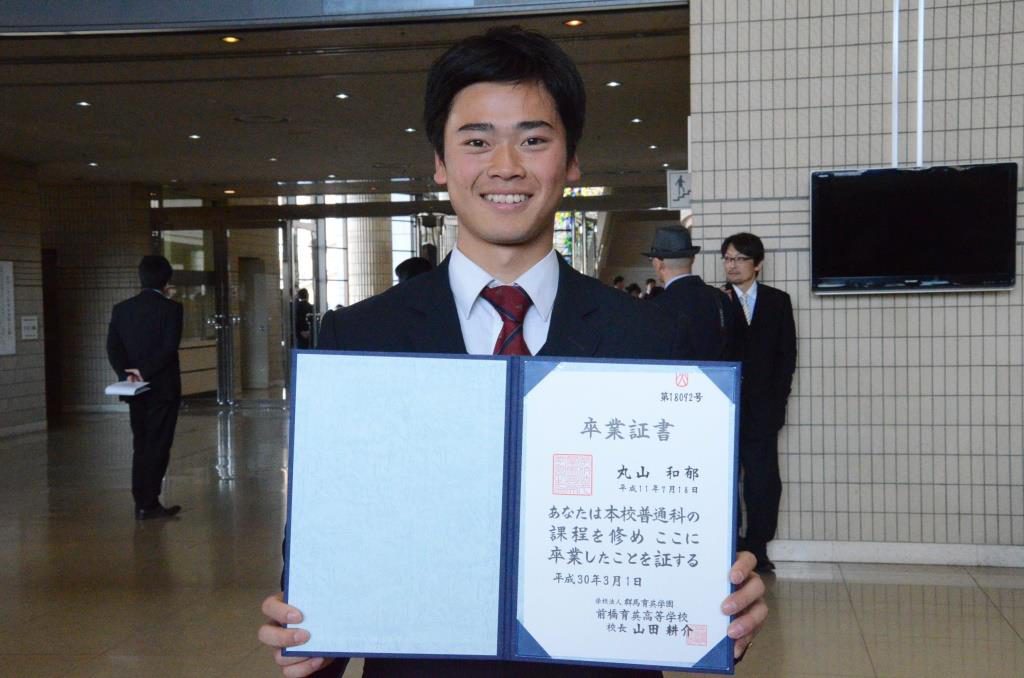 第18092号
卒業証書
丸山 和郁
平成11年7月18日
あなたは本校普通科の
課程を修め ここに
卒業したことを証する
平成30年3月1日
学校法人 群馬育英学園
前橋育英高等学校
校長 山田 耕介